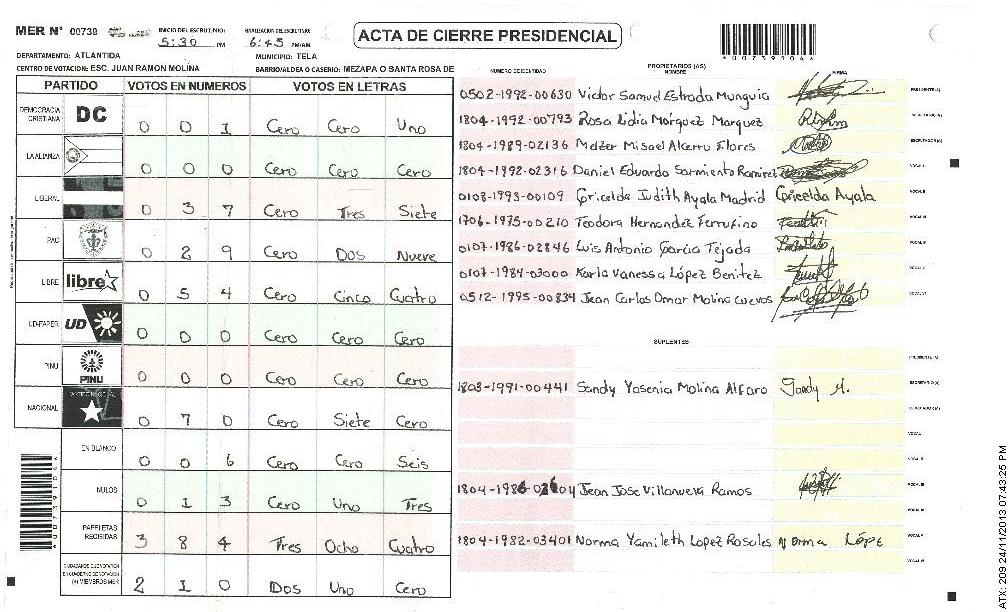 MER N° 00739
INICIO DEL ESCRUTINIO: 5:30 PM
FINALIZACION DEL ESCRUTINIO: 6:45 PM/AM
ACTA DE CIERRE PRESIDENCIAL
DEPARTAMENTO: ATLANTIDA
MUNICIPIO: TELA
CENTRO DE VOTACION: ESC. JUAN RAMON MOLINA
BARRIO/ALDEA O CASERIO: MEZAPA O SANTA ROSA DE
PARTIDO VOTOS EN NUMEROS VOTOS EN LETRAS
DEMOCRACIA CRISTIANA DC 0 0 1 Cero Cero Uno
LA ALIANZA 0 0 0 Cero Cero Cero
LIBERAL 0 3 7 Cero Tres Siete
PAC 0 2 9 Cero Dos Nueve
LIBRE libre 0 5 4 Cero Cinco Cuatro
UD-FAPER UD 0 0 0 Cero Cero Cero
PINU PINU 0 0 0 Cero Cero Cero
NACIONAL 0 7 0 Cero Siete Cero
EN BLANCO 0 0 6 Cero Cero Seis
NULOS 0 1 3 Cero Uno Tres
PAPELETAS RECIBIDAS 3 8 4 Tres Ocho Cuatro
CIUDADANOS QUE VOTARON EN CUADERNO DE VOTACION (+) MIEMBROS MER 2 1 0 Dos Uno Cero
PROPIETARIOS (AS)
NUMERO DE IDENTIDAD NOMBRE FIRMA
0502-1992-00630 Victor Samuel Estrada Munguia PRESIDENTE (A)
1804-1992-00793 Rosa Lidia Marquez Marquez SECRETARIO (A)
1804-1989-02136 Melzer Misael Alcerro Flores ESCRUTADOR (A)
1804-1992-02316 Daniel Eduardo Sarmiento Ramirez VOCAL I
0108-1993-00109 Gricelda Judith Ayala Madrid Gricelda Ayala VOCAL II
1706-1975-00210 Teodora Hernandez Ferrufino VOCAL III
0107-1986-02846 Luis Antonio Garcia Tejada VOCAL IV
0107-1984-03000 Karla Vanessa López Benitez VOCAL V
0512-1995-00834 Jean Carlos Omar Molina Cuevas VOCAL VI
SUPLENTES
PRESIDENTE (A)
1803-1991-00441 Sandy Yasenia Molina Alfaro Sandy M. SECRETARIO (A)
ESCRUTADOR (A)
VOCAL I
VOCAL II
Jean Jose Villanueva Ramos VOCAL III
VOCAL IV
1804-1982-03401 Norma Yamileth Lopez Rosales Norma Lópe VOCAL V
VOCAL VI
ATX: 209 24/11/2013 07:43:25 PM